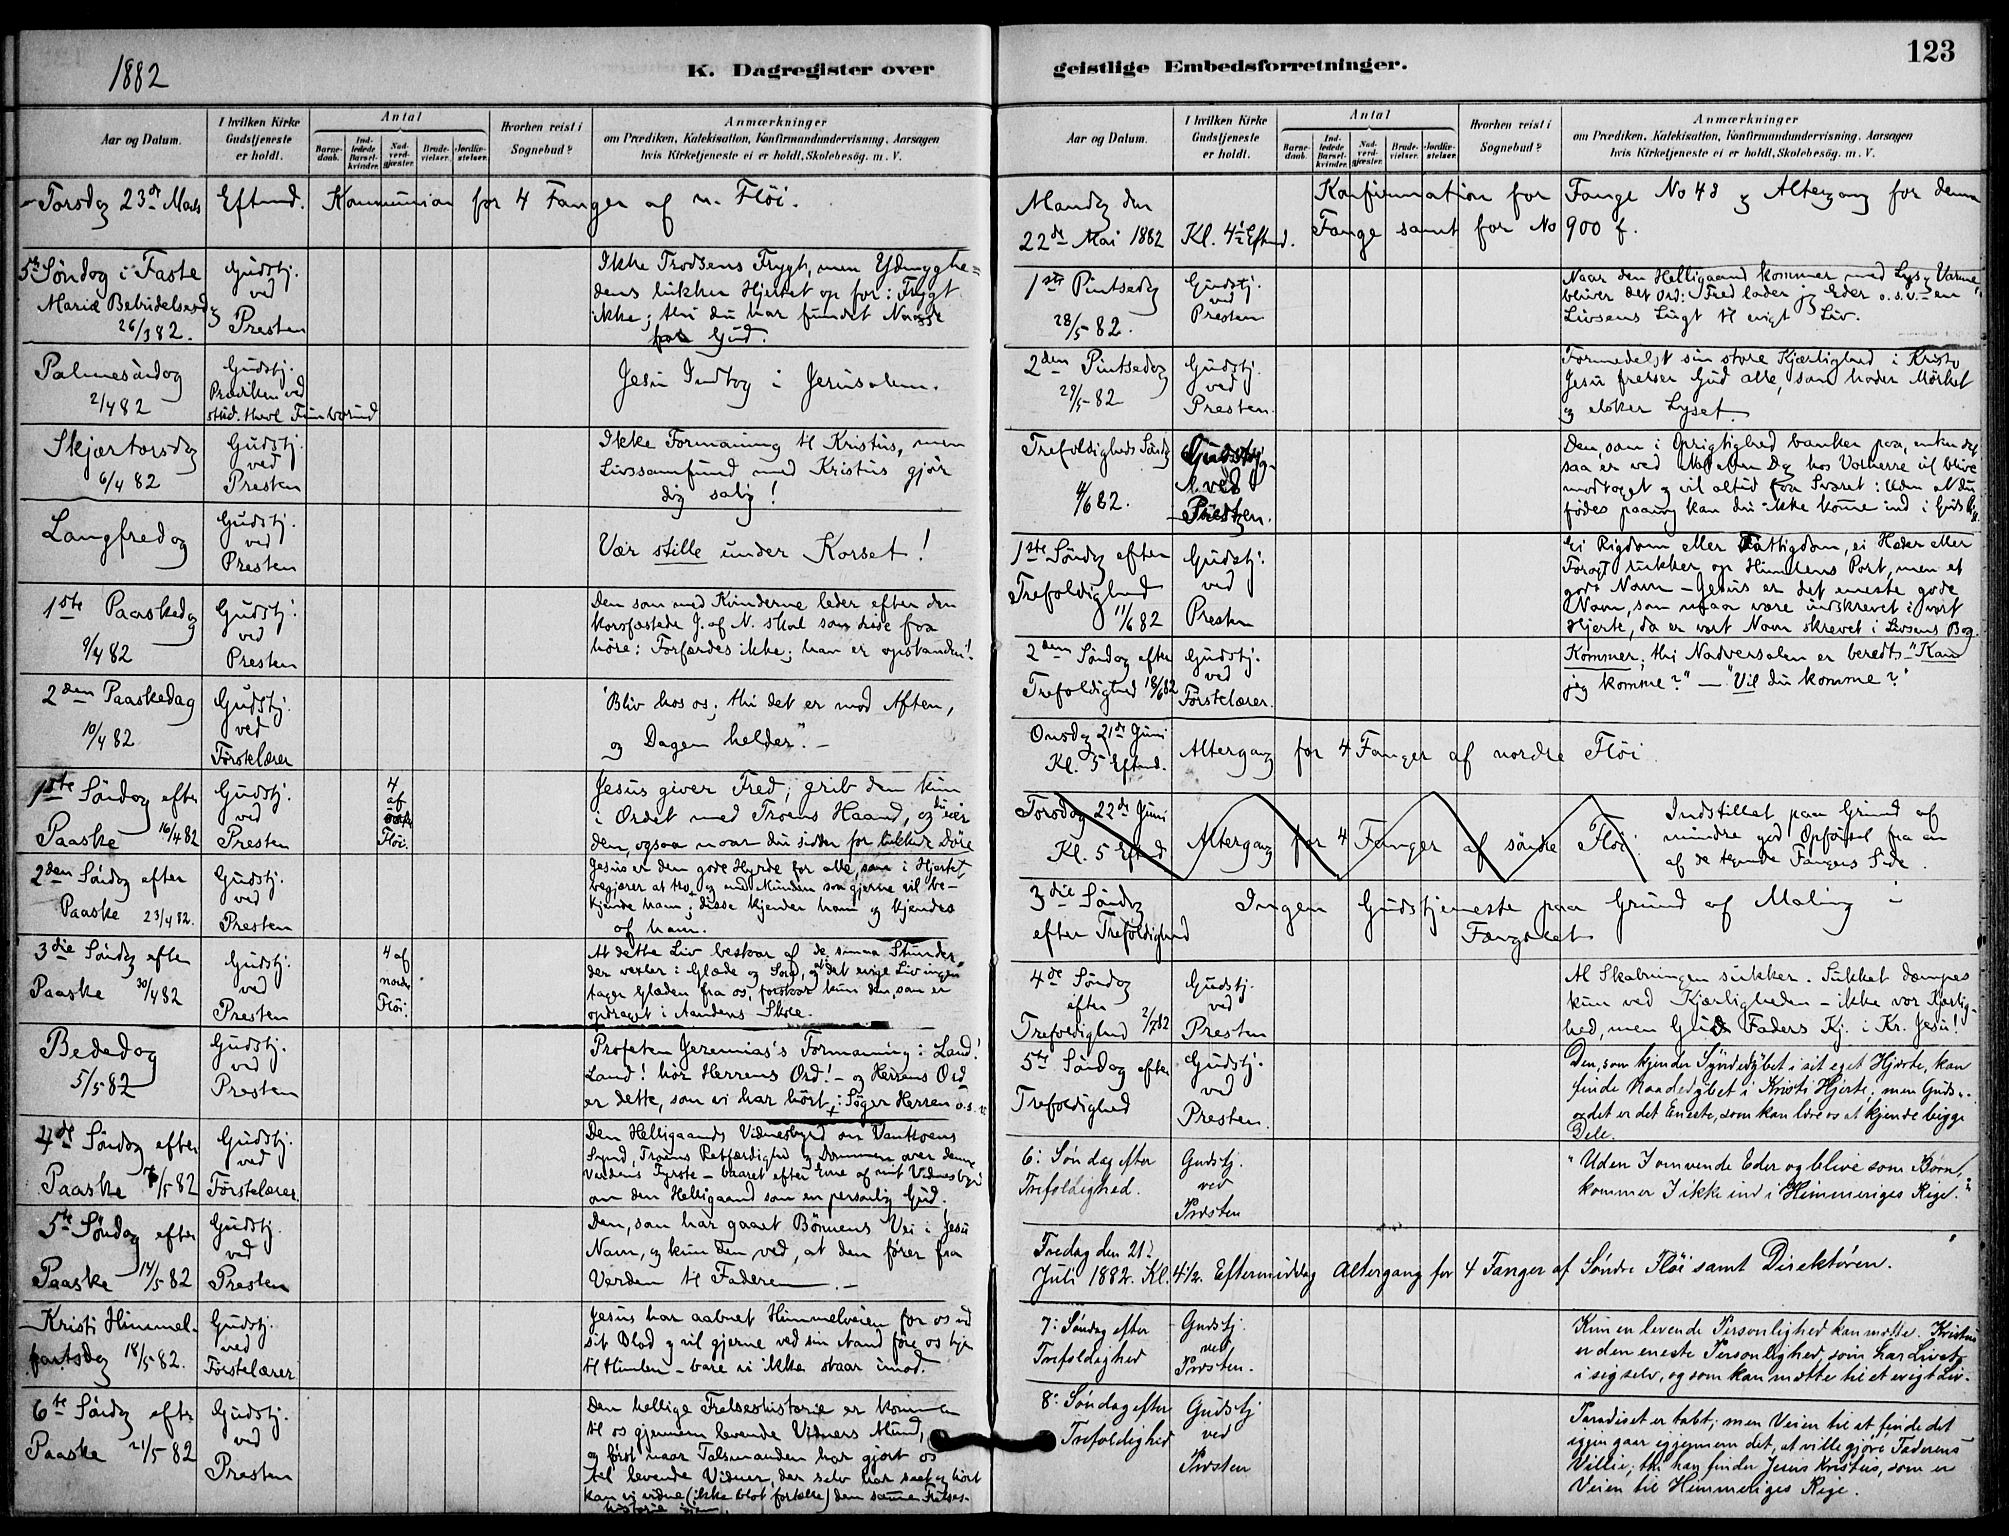 1882
K. Dagregister over
Aar og Datum.
I hvilken Kirke
Gudstjeneste
er holdt.
Antal
Barne-
daab.
Ind-
ledede
Barsel-
kvinder.
Nad-
verd-
gjæster.
Brude-
vielser.
Jordfæ-
stelser.
Hvorhen reist i
Sognebud?
Anmærkninger
om Prædiken, Katekisation, Konfirmandundervisning, Aarsagen
hvis Kirketjeneste ei er holdt, Skolebesög. m. V.
Torsdag 23de Marts Eftmd. Kommunion for 4 Fanger af n. Flöi.
5te Søndag i Faste
Mariæ Bebudelsesdag
26/3 82.
Gudstj.
ved
Presten
Ikke Trodsens Frygt, men Ydmyghe=
dens lukker Hjertet op for: Frygt
ikke; thi du har fundet Naade
for Gud.
Palmesöndag
2/4 82
Gudstj.
Prædiken ved
stud. theol.
Jesu Indtog i Jerusalem.
Skjærtorsdag
6/4 82
Gudstj.
ved
Presten
Ikke Formaning til Kristus, men
Livssamfund med Kristus gjör
dig salig!
Langfredag
Gudstj.
ved
Presten
Vær stille under Korset!
1ste Paaskedag
9/4 82
Gudstj.
ved
Presten
Den som med Kvinderne leder efter den
korsfæstede J. af N. skal som disse faa
höre: Forfærdes ikke; han er opstanden!
2den Paaskedag
10/4 82
Gudstj.
ved
Förstelærer
"Bliv hos os; thi det er mod Aften,
og Dagen helder." —
1ste Söndag efter
Paaske 16/4 82
Gudstj.
ved
Presten
4
af
Flöi.
Jesus giver Fred; grib den kun
i Ordet med Troens Haand, og du eier
den, ogsaa naar du sidder for lukkede Döre
2den Söndag efter
Paaske 23/4 82.
Gudstj.
ved
Presten
Jesus er den gode Hyrde for alle, som i Hjertet
begjærer at tro, og med Munden saa gjerne vil be-
kjende ham; disse kjender ham og kjendes
af ham.
3die Söndag efter
Paaske 30/4 82
Gudstj.
ved
Presten
4 af
nordre
Flöi.
At dette Liv bestaar af de smaa Stunder,
der vexler i Glæde og Sorg, og at det evige Liv ingen
tager Glæden fra os, forstaar kun den, som er
opdraget i Aandens Skole.
Bededag
5/5 82
Gudstj.
ved
Presten
Profeten Jeremias's Formaning: Land!
Land! hör Herrens Ord! — og Herrens Ord
er dette, som vi har hört: Söger Herren o.s.v.
4de Söndag efter
Paaske 7/5 82
Gudstj.
ved
Förstelærer
Den Helligaands Vidnesbyrd om Vantroens
Synd, Troens Retfærdighed og Dommen over denne
Verdens Fyrste — baaret efter Evne af mit Vidnesbyrd
om den Helligaand som en personlig Gud.
5te Söndag efter
Paaske 14/5 82
Gudstj.
ved
Presten
Den, som har gaaet Bönnens Vei i Jesu
Navn, og kun den ved, at den förer fra
Verden til Faderen. —
Kristi Himmel-
fartsdag 18/5 82.
Gudstj.
ved
Förstelærer
Jesus har aabnet Himmelveien for os ved
sit Blod og vil gjerne ved sin Aand före os hjem
til Himlen — bare vi ikke staar imod.
6te Söndag efter
Paaske 21/5 82
Gudstj.
ved
Presten
Den hellige Frelseshistorie er kommen
til os gjennem levende Vidners Mund,
og först naar Talsmanden har gjort os
til levende Vidner, der selv har seet og hört
kan vi vidne (ikke blot fortælle) den samme Frelses-
historie
geistlige Embedsforretninger.
123
Aar og Datum.
I hvilken Kirke
Gudstjeneste
er holdt.
Antal
Barne-
daab.
Ind-
ledede
Barsel-
kvinder.
Nad-
verd-
gjæster.
Brude-
vielser.
Jordfæ-
stelser.
Hvorhen reist i
Sognebud?
Anmærkninger
om Prædiken, Katekisation, Konfirmandundervisning, Aarsagen
hvis Kirketjeneste ei er holdt, Skolebesög. m. V.
Mandag den
22de Mai 1882 Kl. 4½ Eftmd.
Konfirmation for Fange No 48 og Altergang for denne
Fange samt for No 900 f.
1ste Pintsedag
28/5 82.
Gudstj.
ved
Presten
Naar den Helligaand kommer med Lys og Varme,
bliver det Ord: Fred lader jeg Eder o.s.v. — en
Livsens Lugt til evigt Liv.
2den Pintsedag
29/5 82
Gudstj.
ved
Presten.
Formedelst sin store Kjærlighed i Kristo
Jesu frelser Gud alle, som hader Mörket
og elsker Lyset.
Trefoldigheds Söndag
4/6 82.
Gudstj.
ved
Presten.
Den, som i Oprigtighed banker paa, enten det
saa er ved Nat eller Dag hos Vorherre vil blive
modtaget og vil altid faa Svaret: Uden at du
fødes paany kan du ikke komme ind i Guds Rige.
1ste Söndag efter
Trefoldighed
11/6 82
Gudstj.
ved
Presten
Ei Rigdom eller Fattigdom, ei Hæder eller
Foragt lukker op Himlens Port, men et
godt Navn — Jesus er det eneste gode
Navn, som naar være indskrevet i vort
Hjerte, da er vort Navn skrevet i Livsens Bog.
2den Söndag efter
Trefoldighed 18/6 82
Gudstj.
ved
Förstelærer.
Kommer; thi Nadversalen er beredt — "Kan
jeg komme?" — "Vil du komme?"
Onsdag 21de Juni
Kl. 5 Eftmd. Altergang for 4 Fanger af nordre Flöi.
Torsdag 22de Juni
Kl. 5 Eftmd Altergang for 4 Fanger af söndre Flöi.
Indstillet paa Grund af
mindre god Opförsel fra en
af de tjende Fangers Side.
3die Söndag
efter Trefoldighed
Ingen Gudstjeneste paa Grund af Maling i
Fængslet
4de Söndag
efter
Trefoldighed 2/7 82
Gudstj.
ved
Presten
Al Skabningen sukker. Sukket dæmpes
kun ved Kjærligheden — ikke vor Kjærlig-
hed, men Gud Faders Kj. i Kr. Jesu!
5te Söndag efter
Trefoldighed
Gudstj.
ved
Presten.
Den, som kjender Syndedybet i sit eget Hjerte, kan
finde Naadedybet i Kristi Hjerte; men Guds
det er det Eneste, som kan lære os at kjende begge
Dele.
6: Søndag efter
Trefoldighed.
Gudstj.
ved
Presten
"Uden I omvende Eder og blive som Børn,
kommer I ikke ind i Himmeriges Rige."
Fredag den 21de
Juli 1882. Kl. 4½ Eftermiddag Altergang for 4 Fanger af Söndre Flöi samt Direktören.
7: Søndag efter
Trefoldighed
Gudstj.
ved
Presten.
Kun en levende Personlighed kan mætte. Kristus
er den eneste Personlighed, som har Livet
i sig selv, og som kan mætte til et evigt Liv.
8: Søndag efter
Trefoldighed
Gudstj
ved
Presten
Paradiset er tabt; men Veien til at finde det
igjen gaar igjennem det, at ville gjøre Faderens
Villie; thi han finder Jesus Kristus, som er
Veien til Himmeriges Rige.